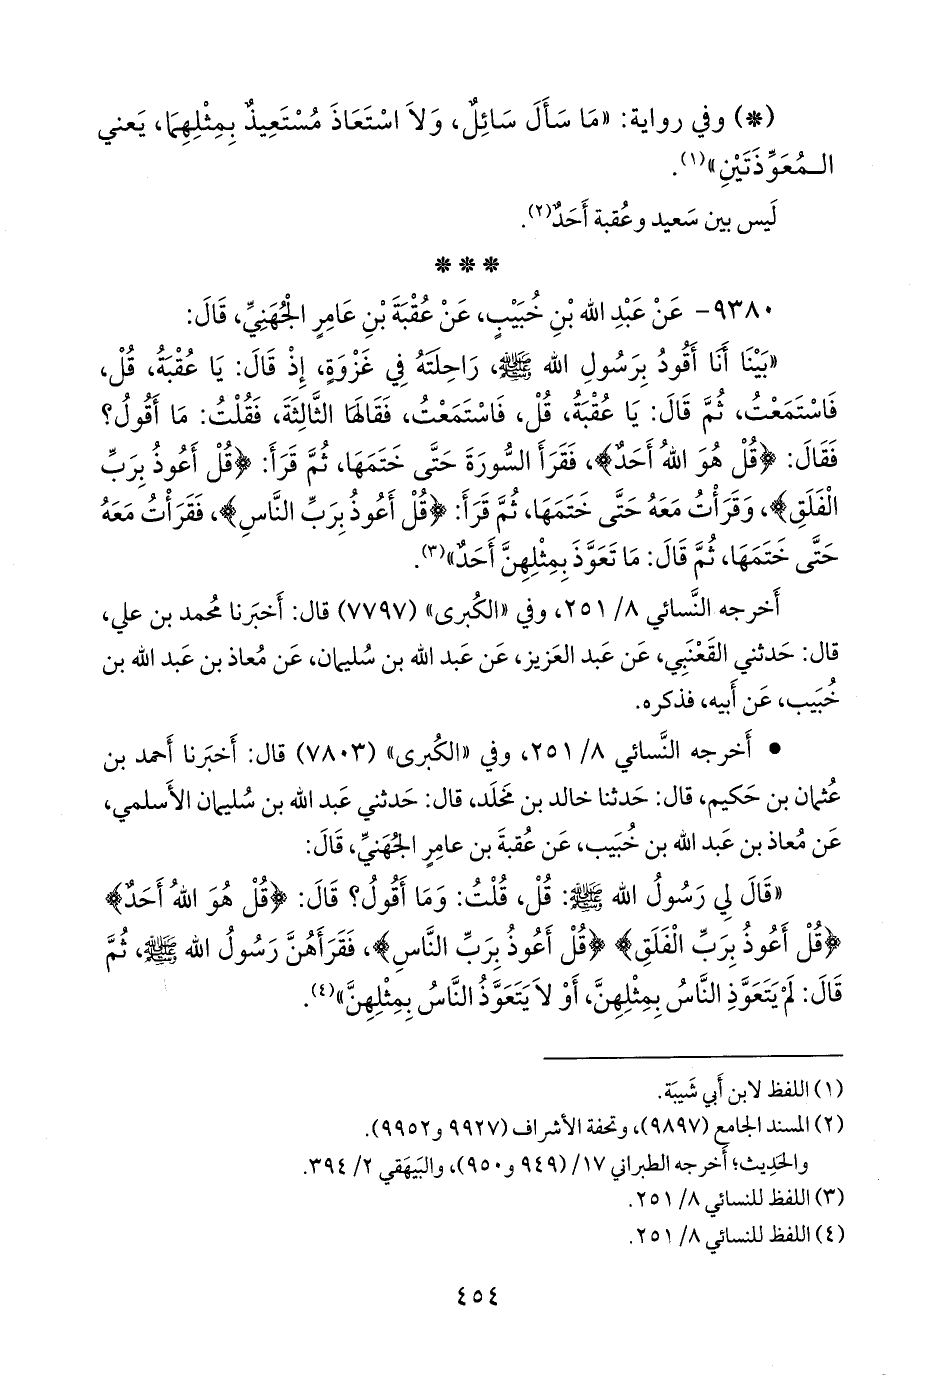 (*) وفي رواية: «مَا سَأَلَ سَائِلٌ، وَلاَ اسْتَعَاذَ مُسْتَعِيذٌ بِمِثْلِهِمَا، يَعني
الـمُعَوِّذَتَيْنِ»(١).
لَيس بين سَعيد وعُقبة أَحَدٌ(٢).
* * *
٩٣٨٠- عَنْ عَبْدِ الله بْنِ خُبَيْبٍ، عَنْ عُقْبَةَ بْنِ عَامِرٍ الْجُهَنِيِّ، قَالَ:
«بَيْنَا أَنَا أَقُودُ بِرَسُولِ الله ﷺ، رَاحِلَتَهُ فِي غَزْوَةٍ، إِذْ قَالَ: يَا عُقْبَةُ، قُلْ،
فَاسْتَمَعْتُ، ثُمَّ قَالَ: يَا عُقْبَةُ، قُلْ، فَاسْتَمَعْتُ، فَقَالَهَا الثَّالِثَةَ، فَقُلْتُ: مَا أَقُولُ؟
فَقَالَ: ﴿قُلْ هُوَ اللهُ أَحَدٌ﴾، فَقَرَأَ السُّورَةَ حَتَّى خَتَمَهَا، ثُمَّ قَرَأَ: ﴿قُلْ أَعُوذُ بِرَبِّ
الْفَلَقِ﴾، وَقَرَأْتُ مَعَهُ حَتَّى خَتَمَهَا، ثُمَّ قَرَأَ: ﴿قُلْ أَعُوذُ بِرَبِّ النَّاسِ﴾، فَقَرَأْتُ مَعَهُ
حَتَّى خَتَمَهَا، ثُمَّ قَالَ: مَا تَعَوَّذَ بِمِثْلِهِنَّ أَحَدٌ»(٣).
أَخرجه النَّسائي ٨/ ٢٥١، وفي «الكُبرى» (٧٧٩٧) قال: أَخبَرنا مُحمد بن علي،
قال: حَدثني القَعْنَبي، عَن عَبد العَزيز، عَن عَبد الله بن سُليمان، عَن مُعاذ بن عَبد الله بن
خُبَيب، عَن أَبيه، فذكره.
• أَخرجه النَّسائي ٨/ ٢٥١، وفي «الكُبرى» (٧٨٠٣) قال: أَخبَرنا أَحمد بن
عُثمان بن حَكيم، قال: حَدثنا خالد بن مَخلَد، قال: حَدثني عَبد الله بن سُليمان الأَسلمي،
عَن مُعاذ بن عَبد الله بن خُبَيب، عَن عُقبةَ بن عامِرٍ الجُهَنيِّ، قَالَ:
«قَالَ لِي رَسُولُ الله ﷺ: قُلْ، قُلْتُ: وَمَا أَقُولُ؟ قَالَ: ﴿قُلْ هُوَ اللهُ أَحَدٌ﴾
﴿قُلْ أَعُوذُ بِرَبِّ الْفَلَقِ﴾ ﴿قُلْ أَعُوذُ بِرَبِّ النَّاسِ﴾، فَقَرَأَهُنَّ رَسُولُ الله ﷺ، ثُمَّ
قَالَ: لَمْ يَتَعَوَّذِ النَّاسُ بِمِثْلِهِنَّ، أَوْ لاَ يَتَعَوَّذُ النَّاسُ بِمِثْلِهِنَّ»(٤).
(١) اللفظ لابن أَبي شَيبَة.
(٢) المسند الجامع (٩٨٩٧)، وتحفة الأشراف (٩٩٢٧ و٩٩٥٢).
والحَدِيث؛ أَخرجه الطبراني ١٧/ (٩٤٩ و٩٥٠)، والبَيهَقي ٢/ ٣٩٤.
(٣) اللفظ للنسائي ٨/ ٢٥١.
(٤) اللفظ للنسائي ٨/ ٢٥١.
٤٥٤